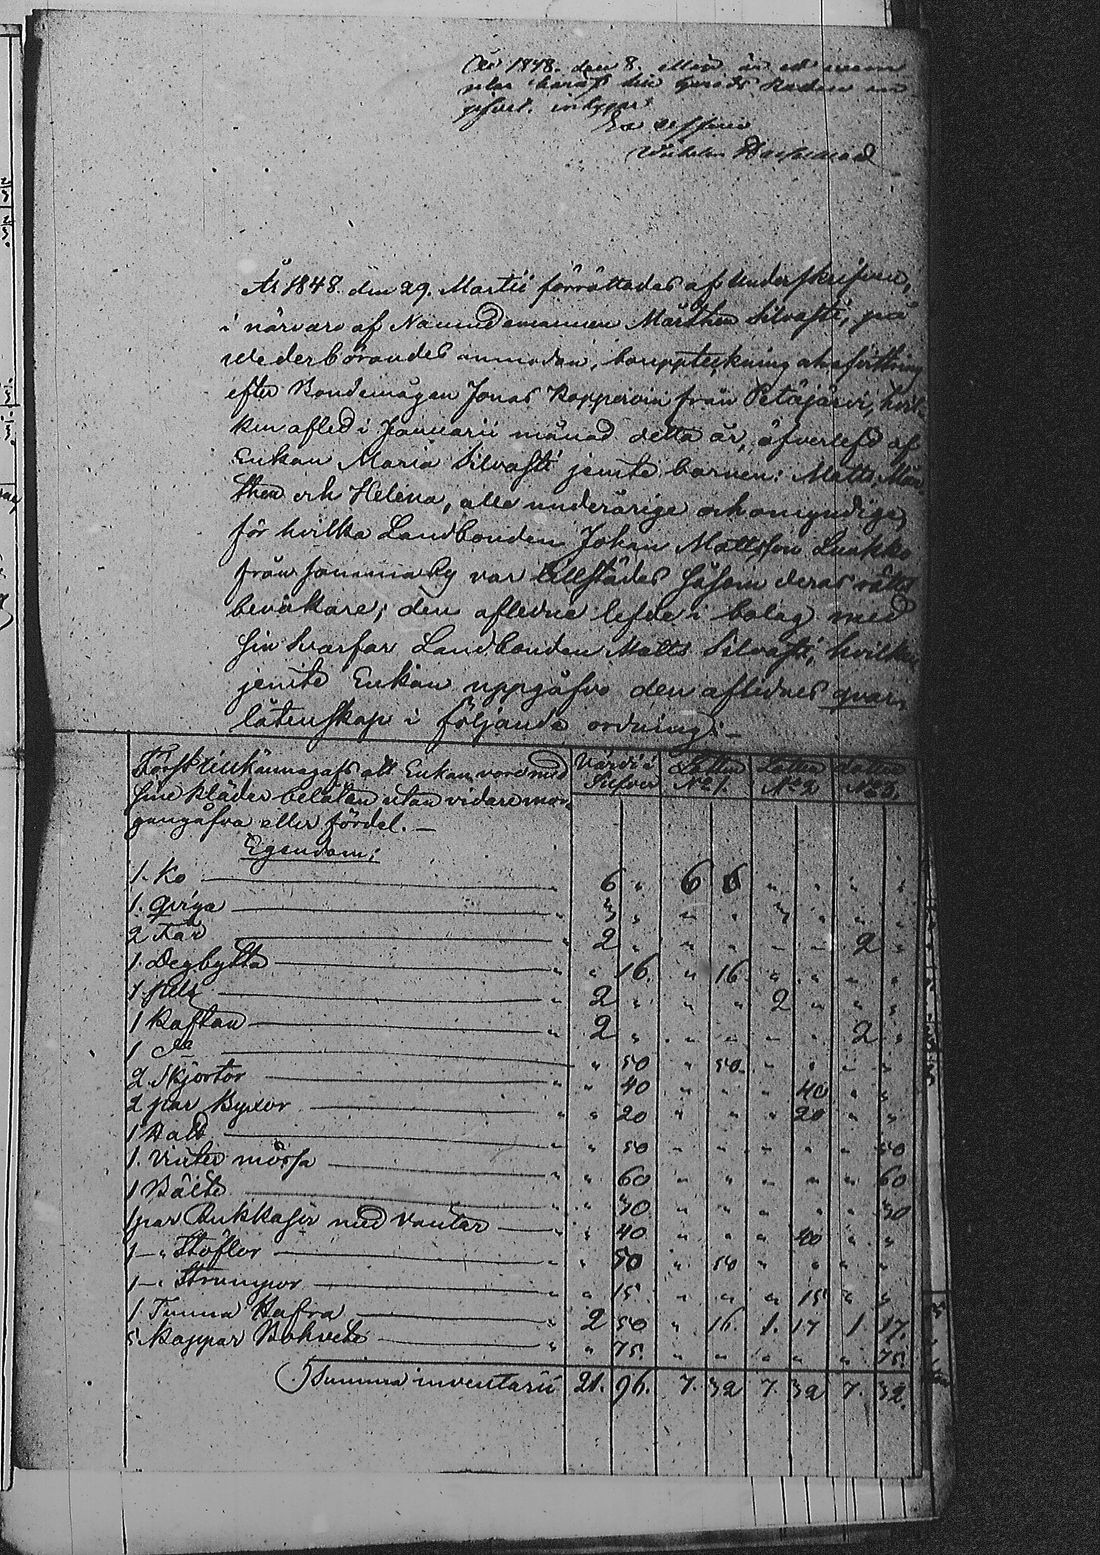 1848. den 8. Maj
År 1848. den 29. Martii förrättades af Underskrifven,
i närvaro af Nämndemannen Mårthen Silvasti, på
vederbörandes anmodan, bouppteckning
efter Bondemågen Jonas Kopperoin från Petäjärvi, hvil-
ken afled i Januarii månad detta år, äfverlefd af
Enkan Maria Silvasti jemte barnen: Matts, Mår-
then och Helena, alla underårige och omyndige,
för hvilka Landbonden Johan Mattsson
från by var tillstädes såsom deras rätts
bevakare; den aflidne lefde i bolag med
sin svärfar Landbonden Matts Silvasti, hvilken
jemte Enkan uppgåfvo den aflidnes qvar-
låtenskap i följande ordning: —
Först tillkännagafs att Enkan vore med
sine kläder belåten utan vidare mor-
gongåfva eller fördel. —
Värde i Silfver Lotten No 1. Lotten No 2 Lotten No 3.
Egendom:
1. Ko 6 " 6 6 " " " "
1. Qviga 3 " " " 3 " " "
2 Får 2 " " " " " 2 "
1. Degbytta " 16. " 16. " " " "
1 Pels 2 " " " 2 " " "
1 Kaftan 2 " " " " " 2 "
1 do " 50 " 50 " " " "
2 Skjortor " 40 " " " 40 " "
2 par Byxor " 20 " " " 20 " "
1 Hatt " 50 " " " " " 50
1. Vinter mössa " 60 " " " " " 60
1 Bälte " 30 " " " " " 30
1 par med vantar " 40 " " " 40 " "
1 —" Stöflor " 50 " 50 " " " "
1 —" Strumpor " 15 " " " 15 " "
1. Tunna Hafra 2 50 " 16. 1. 17 1 17.
5 Kappar Bohvete " 75. " " " " " 75.
Summa inventarii 21. 96. 7. 32 7. 32 7. 32.